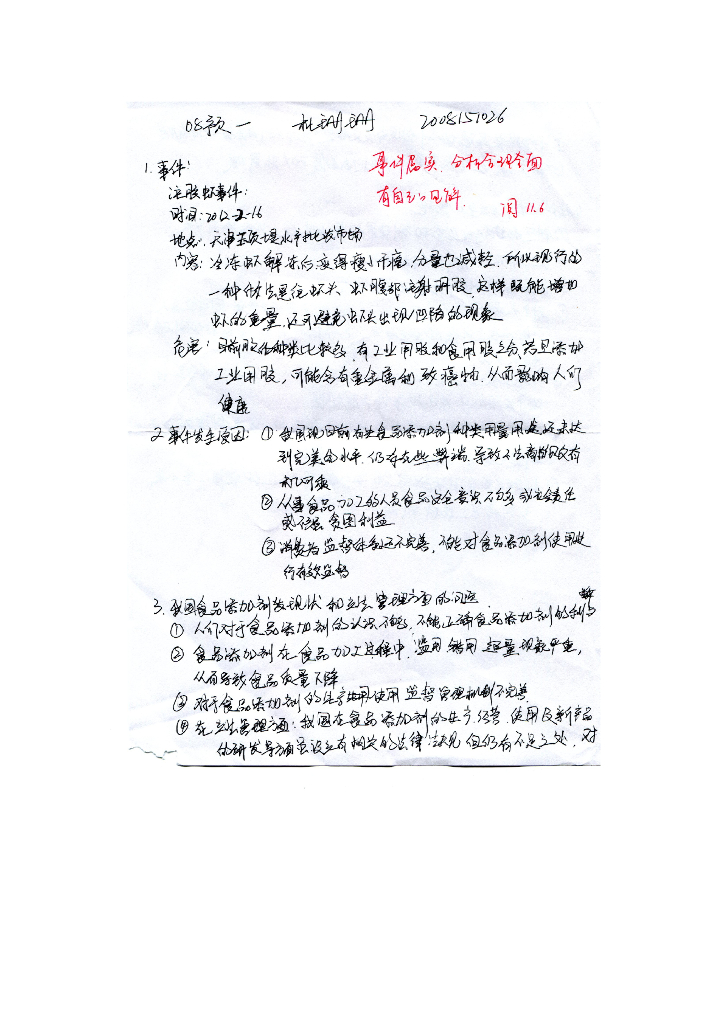 08 一 2008151026
1.事件:
事件属实,分析合理全面
有自己的见解. 阅 11.6
注胶虾事件:
时间:2012-2-16
地点:天津王顶堤水产批发市场
内容:冷冻虾解冻后变得瘦小干瘪,分量也减轻.所以现行的
一种做法是往虾头、虾腹部注射明胶,这样既能增加
虾的重量,还可避免虾头出现凹陷的现象
危害:目前胶的种类比较多,有工业用胶和食用胶之分,若是添加
工业用胶,可能含有重金属和致癌物.从而影响人们
健康
2.事件发生原因:①我国现目前在食品添加剂种类用量用途还未达
到完美的水平.仍存在些弊端.导致不法商贩又有
机可乘
②从事食品加工的人员食品安全意识不够或者责任
贪图利益
③消费者监督体制还不完善,不能对食品添加剂使用进
行有效监督
3.我国食品添加剂发现状和立法管理方面的问题
①人们对于食品添加剂的认识不够,不能正确食品添加剂的利与
②食品添加剂在食品加工过程中,滥用错用超量现象严重,
从而导致食品质量下降
③对于食品添加剂的生产使用监督管理机制不完善
④在立法管理方面:我国在食品添加剂的生产、经营、使用及新产品
的研发等方面虽设立有相关的法律法规但仍有不足之处.对